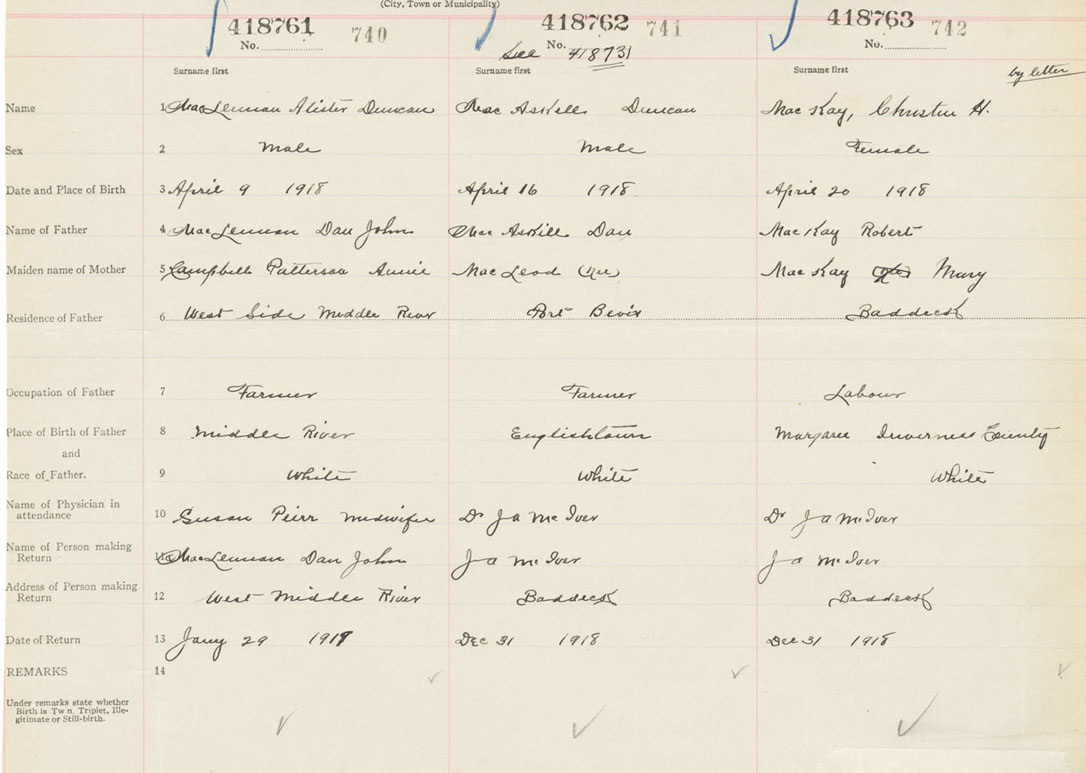 (City, Town or Municipality)
418761 740 418762 741 418763 742
No. No. No.
See 418731
Surname first Surname first Surname first by letter
Name 1 MacLennan Alister Duncan Mac Askill Duncan Mac Kay, Christie H.
Sex 2 Male Male Female
Date and Place of Birth 3 April 9 1918 April 16 1918 April 20 1918
Name of Father 4 MacLennan Dan John Mac Askill Dan Mac Kay Robert
Maiden name of Mother 5 Campbell Patterson Annie MacLeod Mac Kay Mary
Residence of Father 6 West Side Middle River Port Bevis Baddeck
Occupation of Father 7 Farmer Farmer Labour
Place of Birth of Father 8 Middle River Englishtown Margaree Inverness County
and
Race of Father. 9 White White White
Name of Physician in
attendance 10 Susan midwife Dr J A McIver Dr J A McIver
Name of Person making
Return 11 MacLennan Dan John J A McIver J A McIver
Address of Person making
Return 12 West Middle River Baddeck Baddeck
Date of Return 13 Jany 29 1919 Dec 31 1918 Dec 31 1918
REMARKS 14
Under remarks state whether
Birth is Tw n. Triplet, Ille-
gitimate or Still-birth.